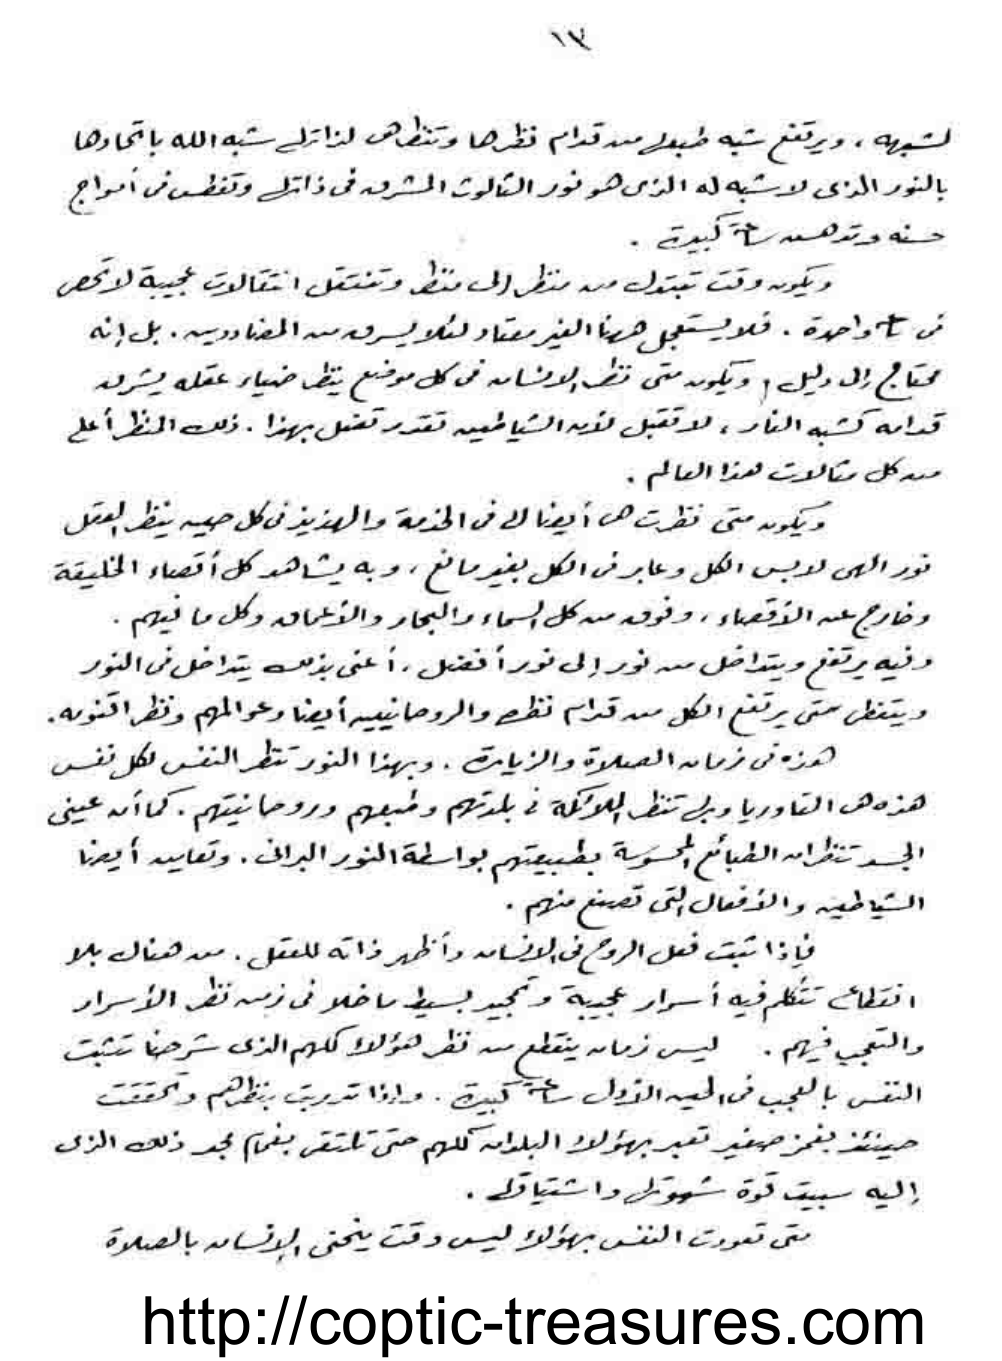 ١٣
لشبهه ، ويرتفع شبه طبعها من قدام نظرها وتنظر هى لذاتها شبه الله باتحادها
بالنور الذى لا شبه له الذى هو نور الثالوث المشرق فى ذاتها وتغطس فى أمواج
حسنه وتدهش ساعة كبيرة .
ويكون وقت تبتدل من منظر إلى منظر وتنتقل انتقالات عجيبة لا تحصى
فى ساعة واحدة . فلا يستعجل ههنا الغير معتاد لئلا يسرق من المضاددين . بل إنه
محتاج إلى دليل ، ويكون متى نظر الإنسان فى كل موضع ينظر ضياء عقله يشرق
قدامه كشبه النار ، لا تقبل لأن الشياطين تقدر تفعل بهذا . ذلك المنظر أعلى
من كل مثالات هذا العالم .
ويكون متى نظرت هى أيضا له فى الخدمة والهذيذ فى كل حين ينظر العقل
نور إلهى لابس الكل وعابر فى الكل بغير مانع ، وبه يشاهد كل أقصاء الخليقة
وخارج عن الأقصاء ، وفوق من كل السماء والبحار والأعماق وكل ما فيهم .
وفيه يرتفع ويتداخل من نور إلى نور أفضل ، أعنى بذلك يتداخل فى النور
ويتغطى حتى يرتفع الكل من قدام نظره والروحانيين أيضا وعوالمهم ونظر اقنومه .
هذه فى زمان الصلاة والزيارة . وبهذا النور تنظر النفس لكل نفس
هذه هى التاوريا وبها تنظر الملائكة فى بلدتهم وطبعهم وروحانيتهم . كما أن عينى
الجسد تنظران الطبائع المحسوسة بطبيعتهم بواسطة النور البرانى . وتعاين أيضا
الشياطين والأفعال التى تصنع منهم .
فإذا ثبت فعل الروح فى الإنسان وأظهر ذاته للعقل . من هناك بلا
انقطاع تتكلم فيه أسرار عجيبة وتمجيد بسيط ما خلا فى زمن نظر الأسرار
والتعجب فيهم . ليس زمان ينقطع من نظر هؤلاء كلهم الذى شرحنا تثبت
النفس بالعجب فى الحين الأول ساعة كبيرة . وإذا تدربت بنظرهم وتحققت
حينئذ بغمز صغير تعبر بهؤلاء البلدان كلهم حتى تلتقى بغمام مجد ذلك الذى
إليه سبيت قوة شهوتها واشتياقها .
متى تعودت النفس بهؤلاء ليس وقت ينحنى الإنسان بالصلاة
http://coptic-treasures.com